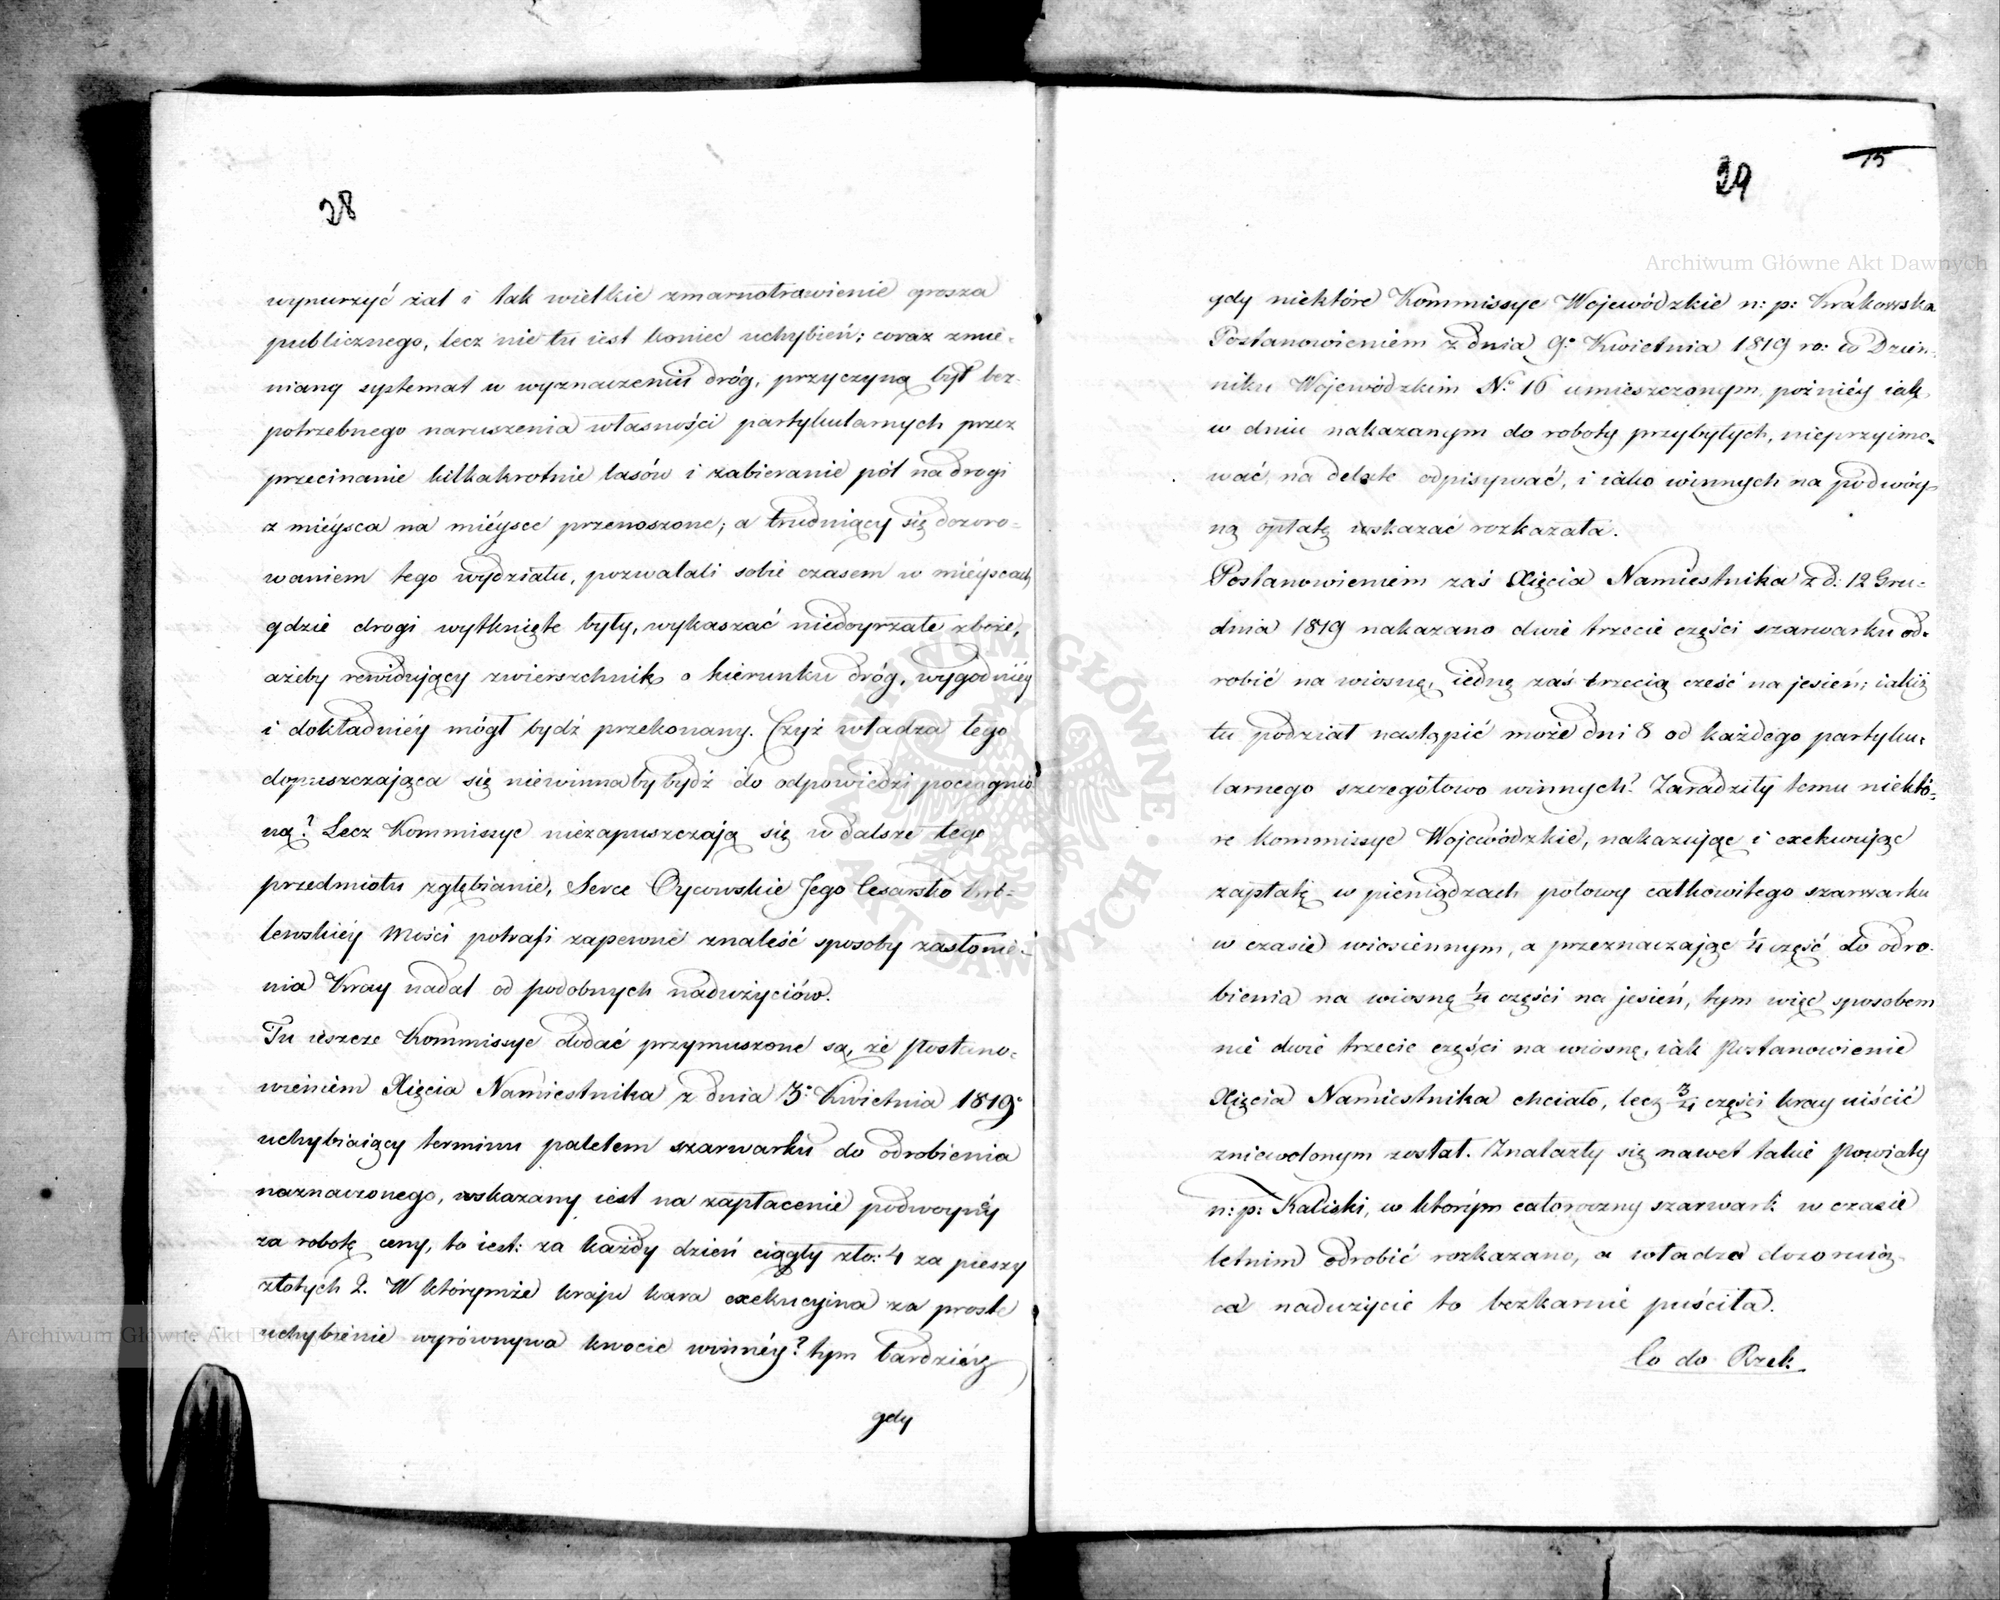 28
wynurzyć żal i tak wielkie zmarnotrawienie grosza
publicznego, lecz nie tu iest koniec uchybień; coraz zmie-
niany systemat w wyznaczeniu dróg, przyczyną był bez-
potrzebnego naruszenia własności partykularnych przez
przecinanie kilkakrotnie lasów i zabieranie pól na drogi
z mieysca na mieysce przenoszone; a trudniący się dozoro-
waniem tego wydziału, pozwalali sobie czasem w mieyscach,
gdzie drogi wytknięte były, wykaszać niedoyrzałe zboże,
ażeby rewidujący zwierszchnik o kierunku dróg, wygodniéy
i dokładniéy mógł bydź przekonany. Czyż władza tego
dopuszczająca się niewinnaby bydź do odpowiedzi pociągnio-
ną? Lecz Kommissye niezapuszczają się w dalsze tego
przedmiotu zgłębianie, Serce Oycowskie Jego Cesarsko Kró-
lewskiéy Mości potrafi zapewne znaleść sposoby zasłonie-
nia Kray nadal od podobnych nadużyciów.
Tu ieszcze Kommissye dodać przymuszone są, że Postano-
wieniem Xięcia Namiestnika z dnia 3º Kwietnia 1819º
uchybiaiący terminu paletem szarwarku do odrobienia
naznaczonego, wskazany iest na zapłacenie podwoynéy
za robotę ceny, to iest: za każdy dzień ciągły zło: 4 za pieszy
złotych 2. W którymże kraju kara exekucyina za proste
uchybienie wyrównywa kwocie winnéy? tym bardziéy
gdy
29
15
Archiwum Główne Akt Dawnych
gdy niektóre Kommissye Wojewódzkie n: p: Krakowska
Postanowieniem z dnia 9º Kwietnia 1819 ro: w Dzien-
niku Wojewódzkim Nº 16 umieszczonym, poźniéy iak
w dniu nakazanym do roboty przybyłych, nieprzyimo-
wać, na delate odpisywać, i iako winnych na podwóy-
ną opłatę wskazać rozkazała.
Postanowieniem zaś Xięcia Namiestnika z d: 12 Gru-
dnia 1819 nakazano dwie trzecie części szarwarku od-
robić na wiosnę, iedną zaś trzecią cześć na jesień; iakiż
tu podział nastąpić może dni 8 od każdego partyku-
larnego szczegółowo winnych? Zaradziły temu niektó-
re Kommissye Wojewódzkie, nakazując i exekwując
zapłatę w pieniądzach połowy całkowitego szarwarku
w czasie wiosiennym, a przeznaczając ¼ część do odro-
bienia na wiosnę ¼ części na jesień, tym więc sposobem
nie dwie trzecie części na wiosnę, iak Postanowienie
Xięcia Namiestnika chciało, lecz ¾ części kray uiścić
zniewolonym został. Znalazły się nawet takie Powiaty
n: p: Kaliski, w którym całoroczny szarwark w czasie
letnim odrobić rozkazano, a władza dozoruią-
ca nadużycie to bezkarnie puściła.
Co do Rzek
Archiwum Główne Akt D
ARCHIWUM GŁÓWNE AKT DAWNYCH